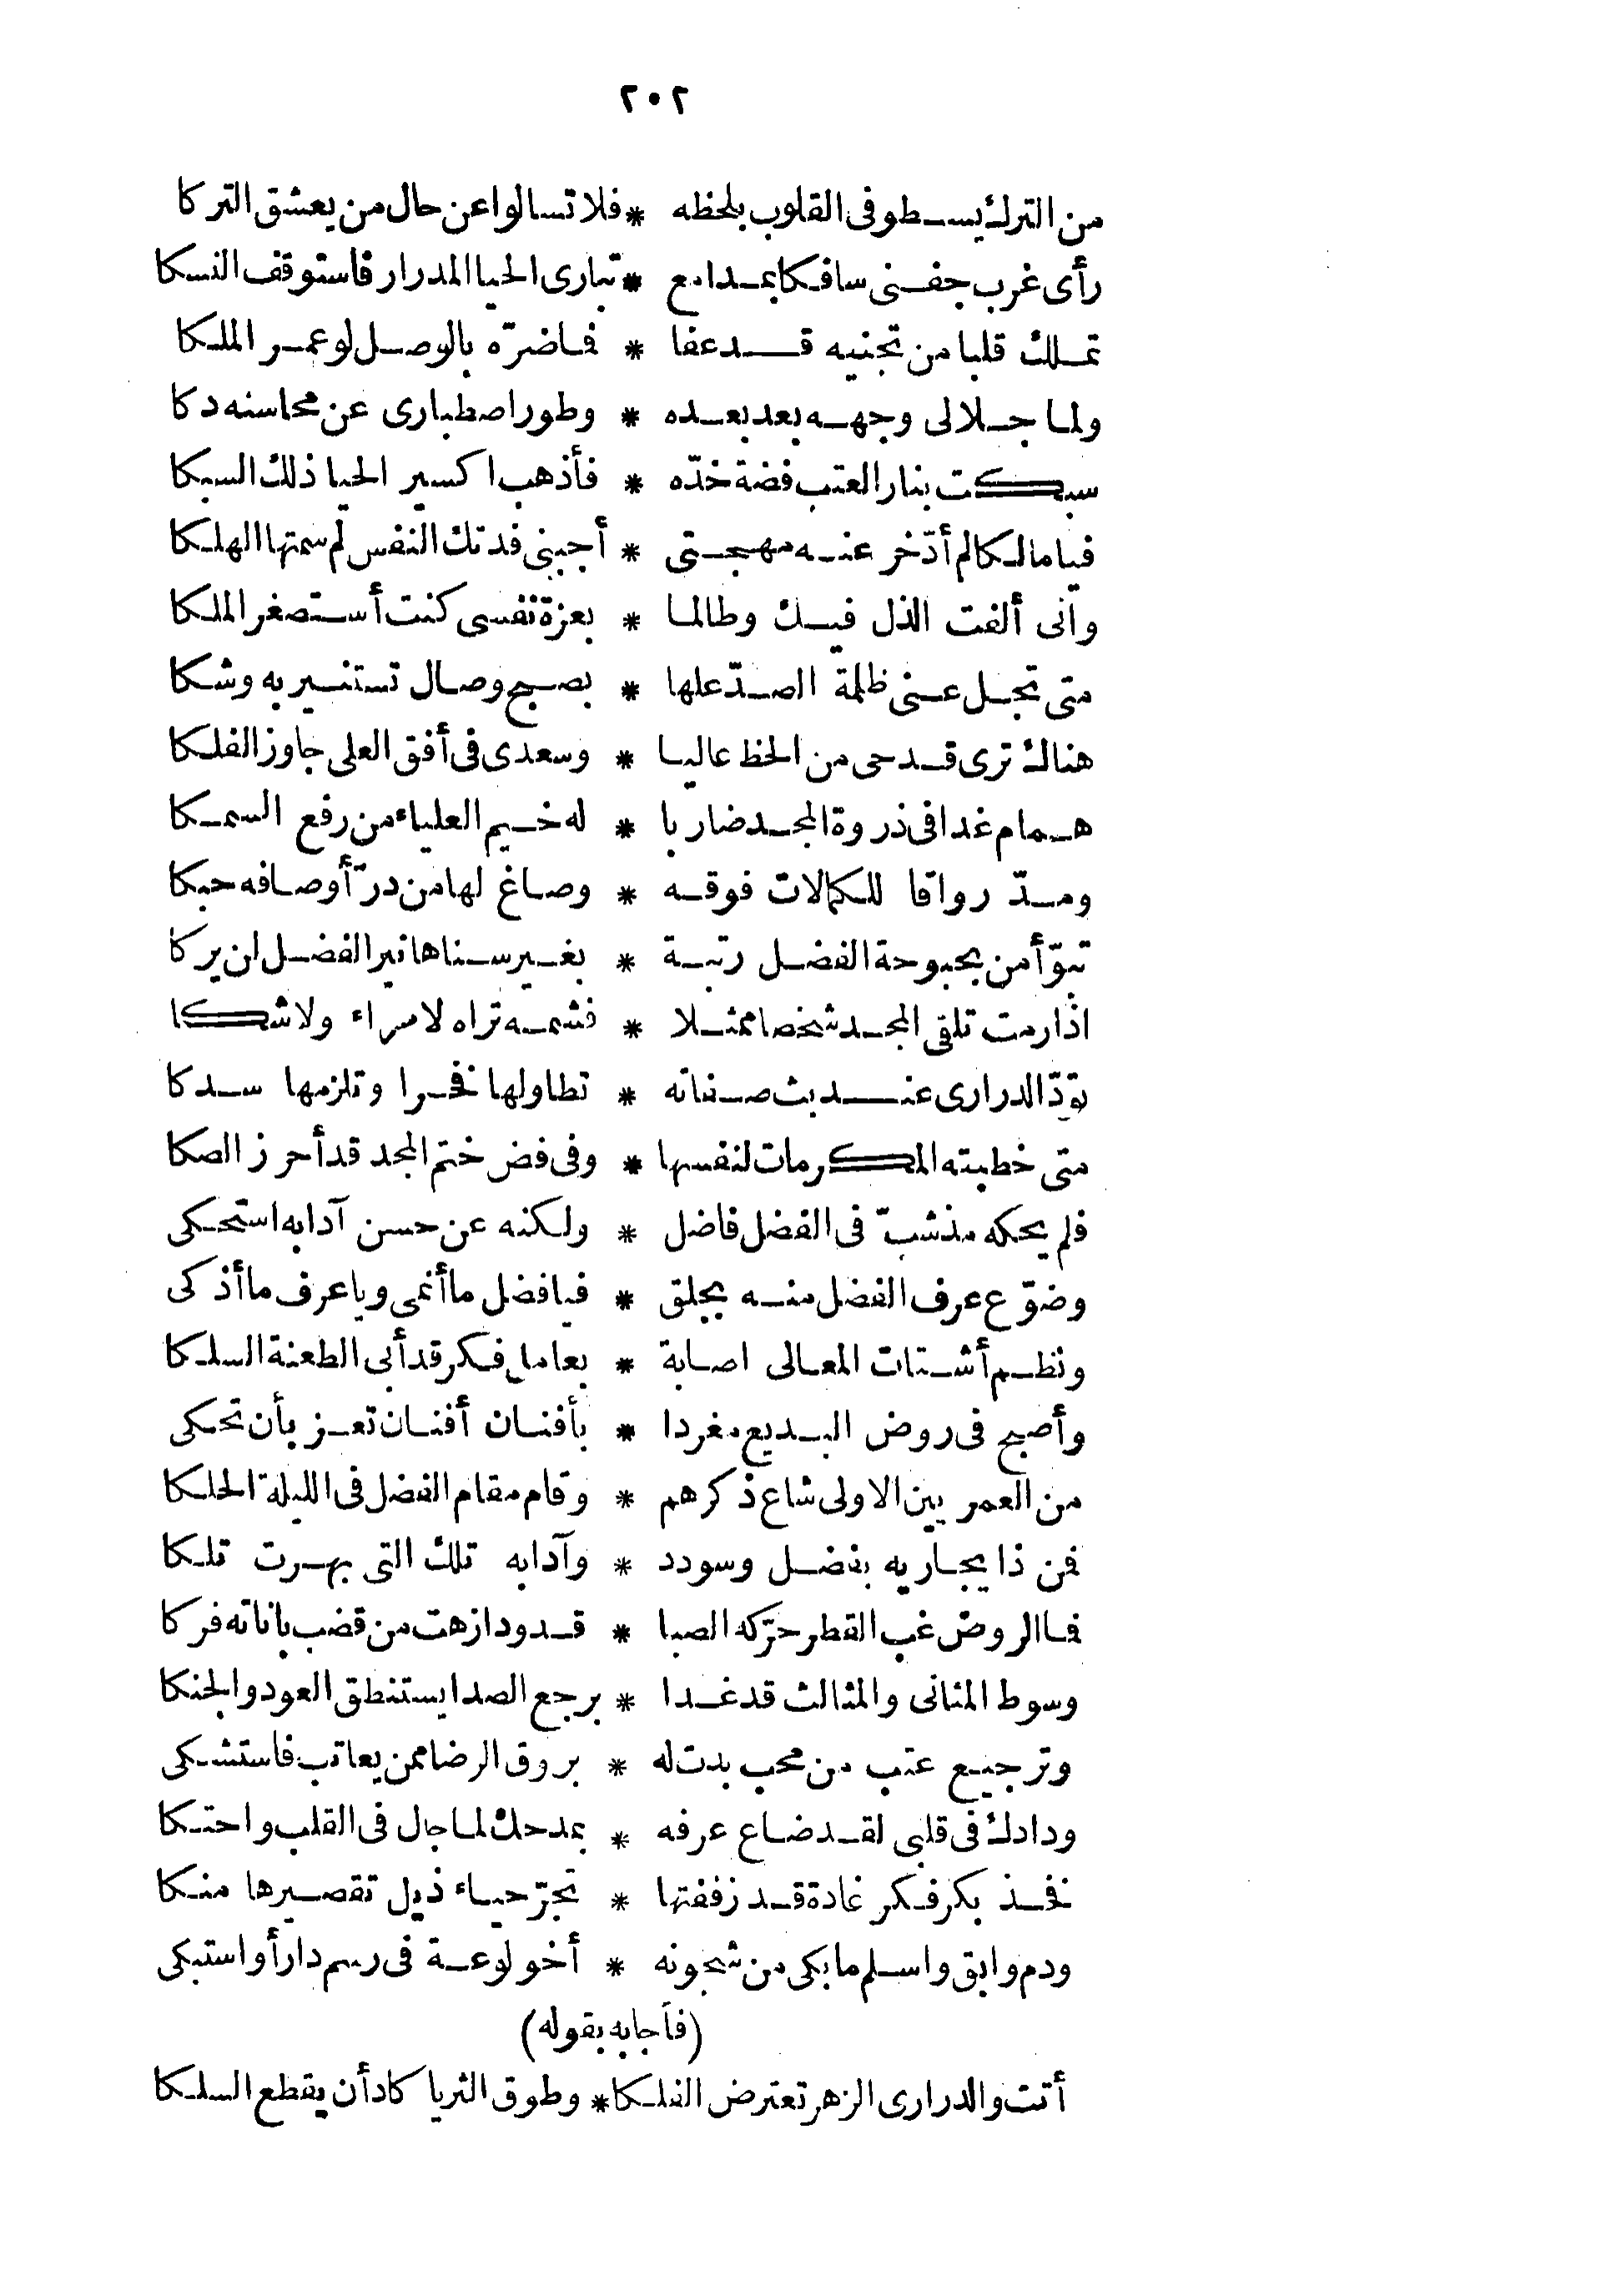 ٢٠٢
من الترك يسطو فى القلوب بلحظه * فلا تسالوا عن حال من يعشق التركا
رأى غرب جفنى سافكا بمدامع * تبارى الحيا المدرار فاستوقف النسكا
تملك قلبا من تجنيه قد عفا * فاضرّه بالوصل لو عمر الملكا
ولما جلا لى وجهه بعد بعده * وطور اصطبارى عن محاسنه دكا
سبكت بنار العتب فضة خدّه * فأذهب اكسير الحيا ذلك السبكا
فيا مالكا لم أدّخر عنه مهجتى * أجبنى فدتك النفس لم سمتها الهلكا
وأنى ألفت الذل فيك وطالما * بعزة نفسى كنت أستصغر الملكا
متى تجل عنى ظلمة الصدّ علها * بصبح وصال تستنير به وشكا
هناك ترى قدحى من الحظ عاليا * وسعدى فى أفق العلى جاوز الفلكا
همام غدا فى ذروة المجد ضاربا * له خيم العلياء من رفع السمكا
ومدّ رواقا للكمالات فوقه * وصاغ لها من درّ أوصافه حبكا
تبوّأ من بحبوحة الفضل رتبة * بغير سناها نير الفضل لن يركا
اذا رمت تلقى المجد شخصا ممثلا * فشمه تراه لا مراء ولا شكا
تودّ الدرارى عند بث صفاته * تطاولها نخرا وتلزمها سدكا
متى خطبته المكرمات لنفسها * وفى فض ختم المجد قد أحرز الصكا
فلم يحكه مذ شبّ فى الفضل فاضل * ولكنه عن حسن آدابه استحكى
وضوّع عرف الفضل منه بجلق * فيا فضل ما أنمى ويا عرف ما أذكى
ونظم أشتات المعالى اصابة * بعامل فكر قد أبى الطعنة السلكا
وأصبح فى روض البديع مغردا * بأفنان أفنان تعز بأن تحكى
من العمر بين الاولى شاع ذكرهم * وقام مقام الفضل فى الليلة الحلكا
فمن ذا يجاريه بفضل وسودد * وآدابه تلك التى بهرت تلكا
فما الروض غب القطر حرّكه الصبا * قدودا زهت من قضب باناته فركا
وسوط المثانى والمثالث قد غدا * برجع الصدا يستنطق العود والجنكا
وترجيع عتب من محب بدت له * بروق الرضا ممن يعاتب فاستشكى
ودادك فى قلبى لقد ضاع عرفه * بمدحك لما جال فى القلب واحتكا
نخذ بكر فكر غادة قد زففتها * تجرّ حياء ذيل تقصيرها منكا
ودم وابق واسلم ما بكى من شجونه * أخو لوعة فى رسم دار أو استبكى
(فأجابه بقوله)
أتت والدرارى الزهر تعترض الفلكا * وطوق الثريا كاد أن يقطع السلكا